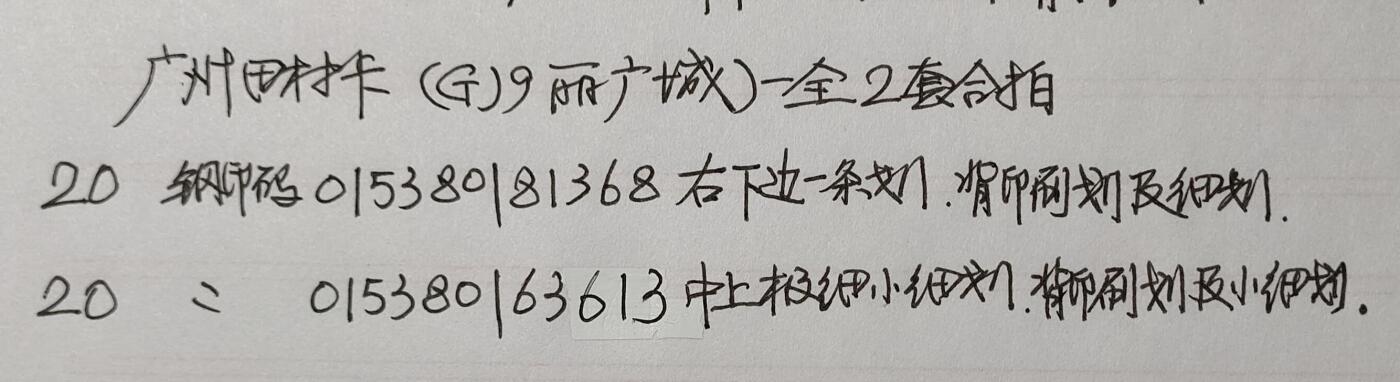 广州田村卡(G)9丽广城)一全2套合拍
20 钢印码015380181368右下边一条划.背印刷划及细划.
20 〃 015380163613中上极细小细划.背印刷划及小细划.